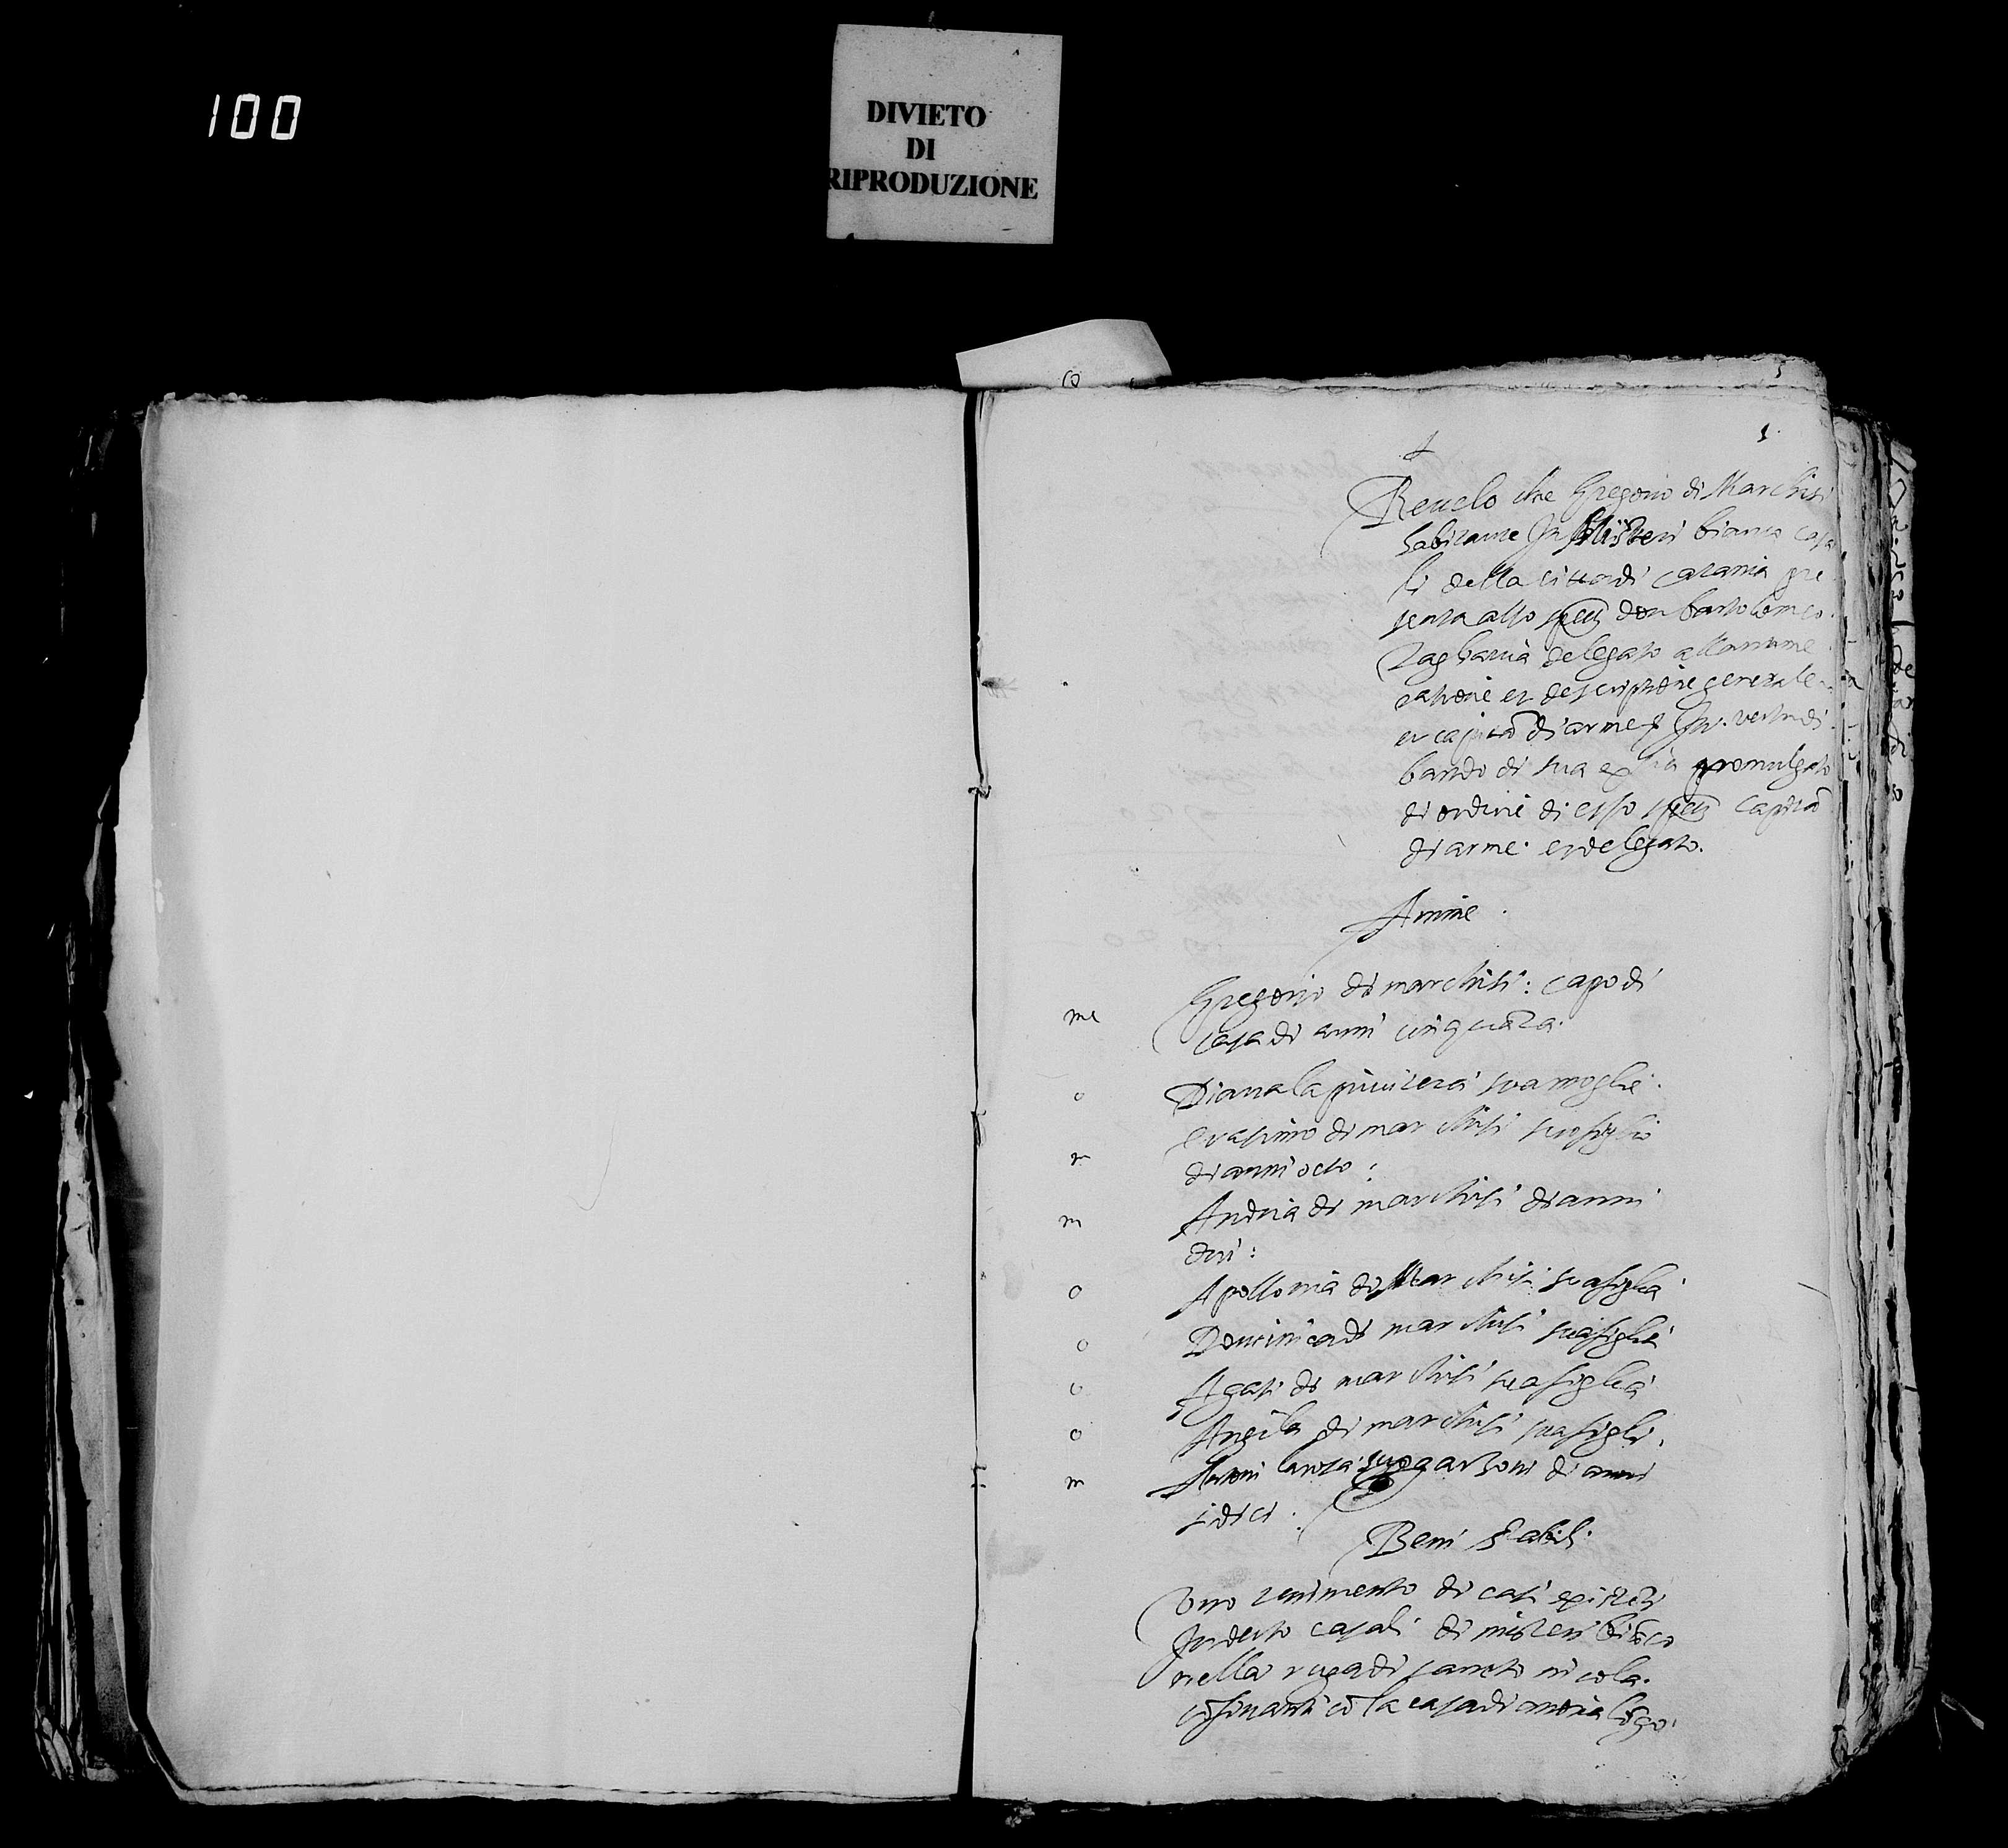 100
DIVIETO
DI
RIPRODUZIONE
1
Revelo che Gregorio di Marchisi
habitante In Misteri bianco casa
li della citta di catania pre
senta allo spett. don bartolomeo
Tagliavia delegato alla nume
ratione et descriptione generale
et capitão di arme p In virtu di
bando di sua ex.tia promulgato
di ordine di esso spett. Capitão
di arme et delegato.
Anime
me Gregorio di marchisi: capo di
casa di anni cinquāta.
o Diana la privitera sua moglie.
m erasimo di marchisi suo figlio
di anni octo:
m Andria di marchisi di anni
dui:
o Apollonia di Marchisi sua figlia
o Dominica di marchisi sua figlia
o Agati di marchisi sua figlia
o Angila di marchisi sua figli.
m Antoni lanza suo garzoni di anni
sidici.
Beni stabili
Uno tenimento di casi existēti
In detto casali di misteri biāco
nella ruga di santo nicola.
cōfinanti cō la casa di andria lōgo.